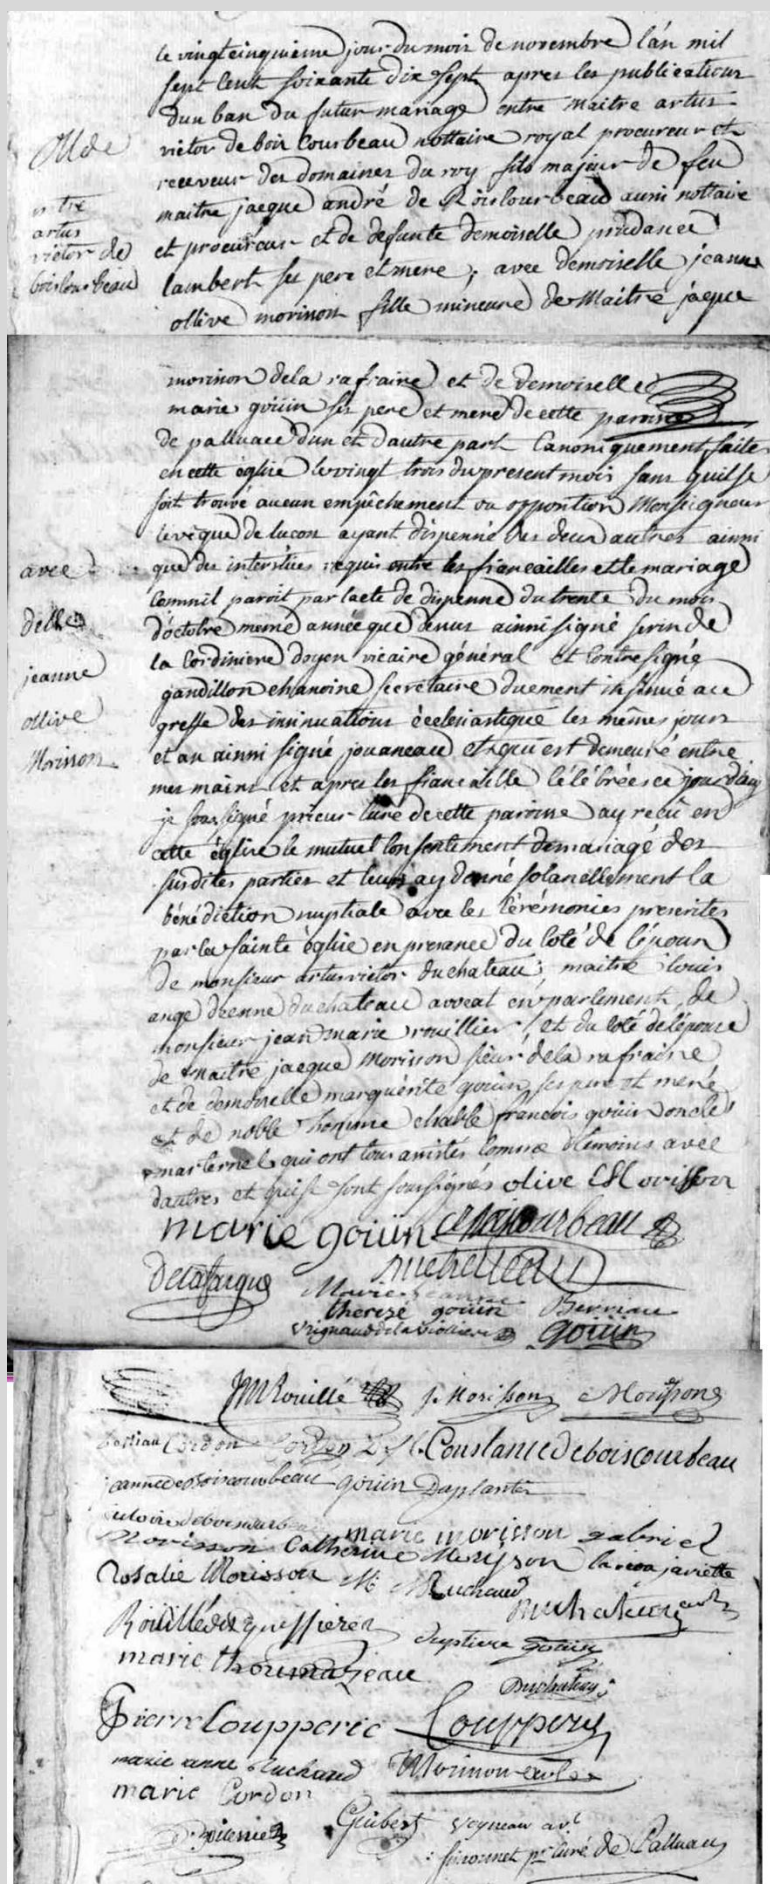 le vingtcinquieme jour du mois de novembre l'an mil
sept cent soixante dix sept apres les publications
dun ban du futur mariage entre maitre artus
victor de bois Courbeau nottaire royal procureur et
receveur des domaines du roy fils majeur de feu
maitre jaque andré de Boiscourbeau aussi nottaire
et procureur et de defunte demoiselle prudance
lambert ses pere et mere ; avec demoiselle jeanne
ollive morisson fille mineure de Maitre jaque
M de
artus
victor de
boiscourbeau
morisson dela rafraire et de demoiselle
marie goüin ses pere et mere de cette paroisse
de palluace dun et dautre part Canoniquement faite
en cette église le vingt trois du present mois sans quil se
soit trouvé aucun empêchement ou opposition Monseigneur
levêque de lucon ayant dispensé des deux autres ainsi
que des interstices requis entre les fiancailles et le mariage
Comme il paroit par lacte de dispense du trente du mois
d'octobre meme année que dessus ainsi signé de
la Cordiniere doyen vicaire général et Contresigné
gandillon chanoine secretaire duement insinué au
greffe des insinuations écclesiastique les mêmes jours
et an ainsi signé jouaneau et qui est demeuré entre
mes mains et apres les fiancaille célébrées ce jourdhuy
je soussigné prieur curé de cette paroisse ay recû en
cette église le mutuel consentement de mariage des
susdites parties et leurs ay donné solanellement la
bénédiction nuptiale avec les Cérémonies prescrites
par la sainte église en presance du coté de l'époux
de monsieur artus victor duchateau ; maitre louis
ange duchateau avocat en parlement, de
monsieur jean marie rouillier, et du coté de lépouse
de maitre jaque Morisson sieur dela rafraire
et de demoiselle marguerite goüin ses pere et mere
et de noble homme francois goüin oncle
maternel qui ont tous assistés comme témoins avec
dautres et qui se sont soussignés olive Morisson
avec
delle
jeanne
ollive
Morisson
marie goüin Boiscourbeau
Delafargue
Marie jeanne
therese goüin
goüin
JM Rouillé J Morisson Morisson
Cordon Constance de boiscourbeau
jeanne de boiscourbeau goüin Daplanter
marie morisson gabriel
Morisson Catherine Morisson
Rosalie Morisson M Ruchaud
Duchateau
marie thoumazeau
Duchatau
Pierre Coupperie Couppery
marie anne Ruchaud
marie Cordon
Guibert
curé de Palluau